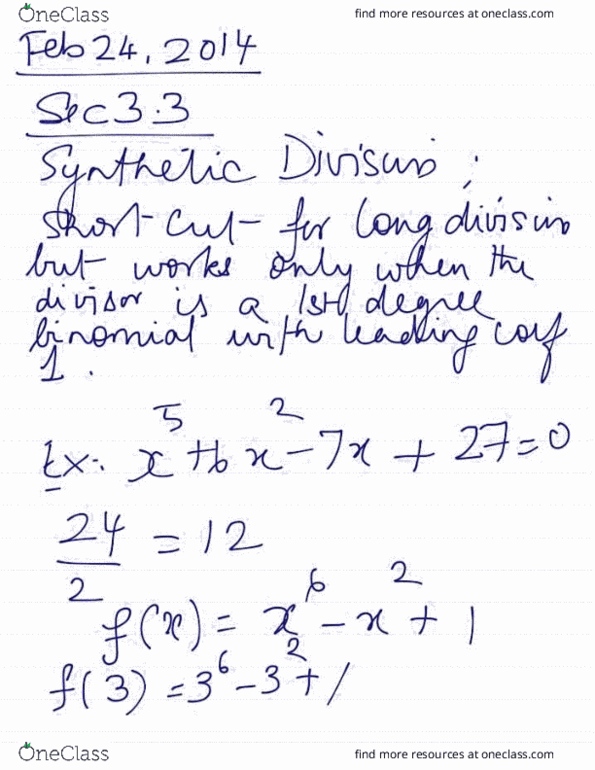 OneClass find more resources at oneclass.com
Feb 24, 2014
Sec 3.3
Synthetic Division:
Short-cut for long division
but works only when the
divisor is a 1st degree
binomial with leading coef
1.
Ex:. x⁵ + 6x² - 7x + 27 = 0
24/2 = 12
f(x) = x⁶ - x² + 1
f(3) = 3⁶ - 3² + 1
OneClass find more resources at oneclass.com